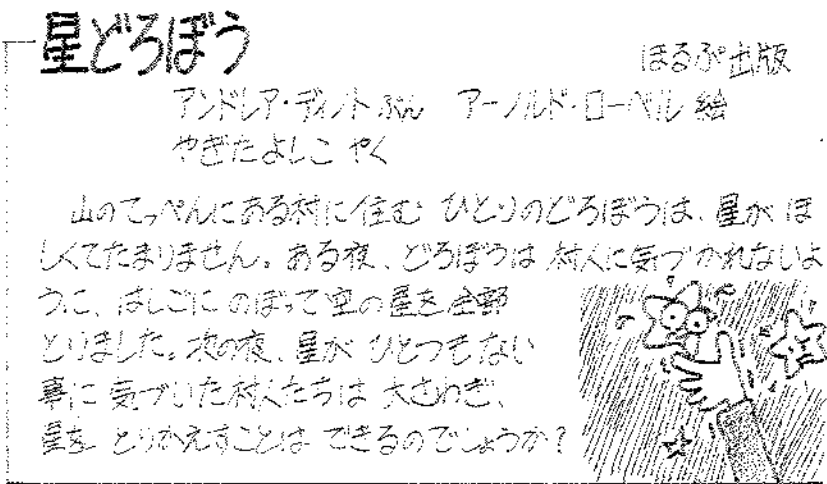 星どろぼう
ほるぷ出版
アンドレア・ディノト ぶん アーノルド・ローベル 絵
やぎたよしこ やく
山のてっぺんにある村に住む ひとりのどろぼうは、星がほ
しくてたまりません。ある夜、どろぼうは 村人に気づかれないよ
うに、はしごに のぼって空の星を全部
とりました。次の夜、星が ひとつもない
事に気づいた村人たちは 大さわぎ、
星を とりかえすことは できるのでしょうか?